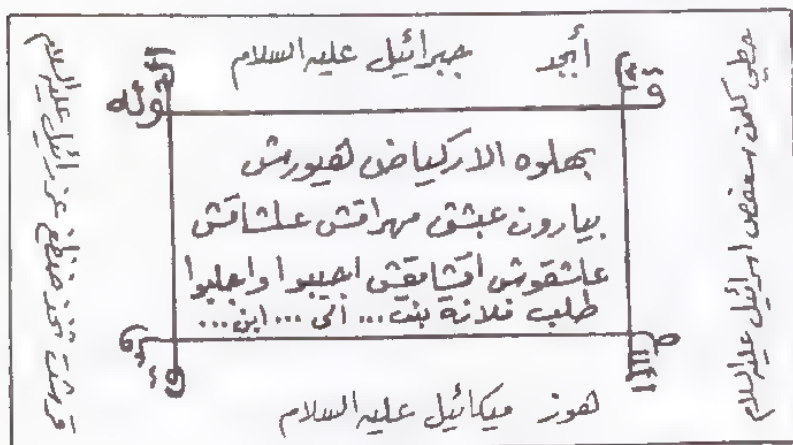 أبجد جبرائيل عليه السلام
قوله
بهلوه الاركياض هيورش
بيارون عبشق مهراقش علشاقش
علشقوش اقشامقش اجيبوا واجلبوا
طلب فلانة بنت ... الى ... ابن ...
هوز ميكائيل عليه السلام
حطي كلمن سعفص اسرائيل عليه السلام
قرشت ثخذ ضظغ عزرائيل عليه السلام